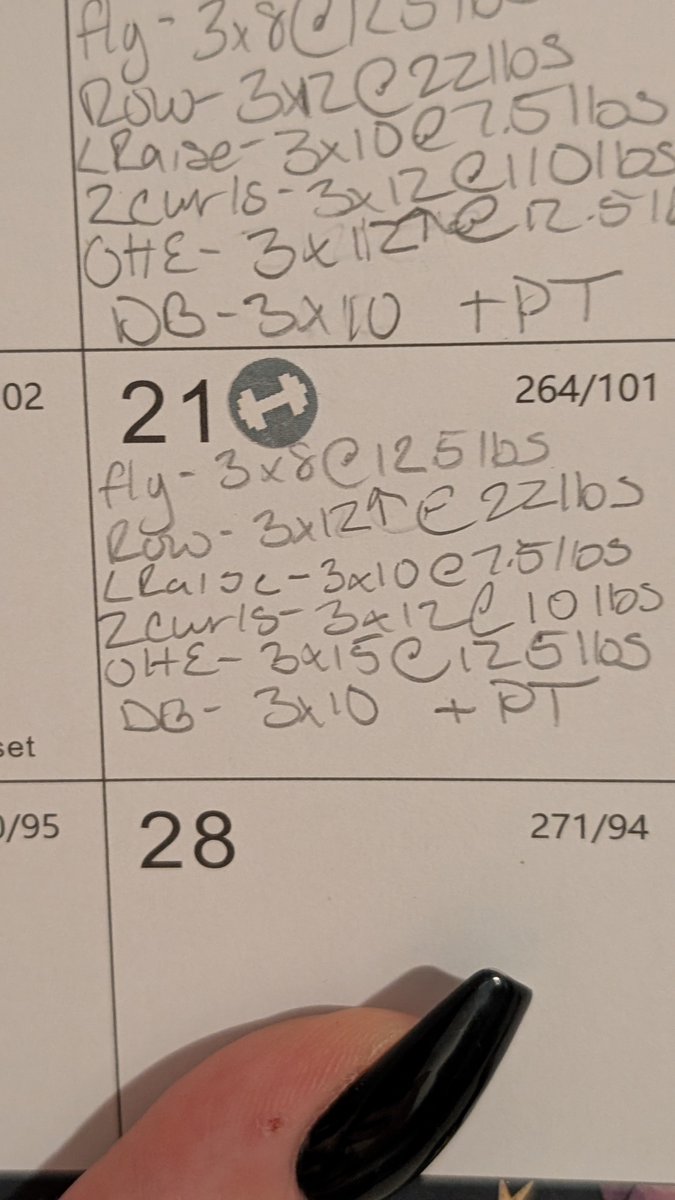 fly - 3x8@125 lbs
Row - 3x12@22lbs
LRaise - 3x10@7.5lbs
ZCurls - 3x12@110lbs
OHE - 3x12↑@12.5l
DB - 3x10 +PT
02
21
264/101
fly - 3x8@125lbs
Row - 3x12↑@22lbs
LRaise - 3x10@7.5lbs
ZCurls - 3x12@10lbs
OHE - 3x15@125lbs
DB - 3x10 +PT
set
/95
28
271/94